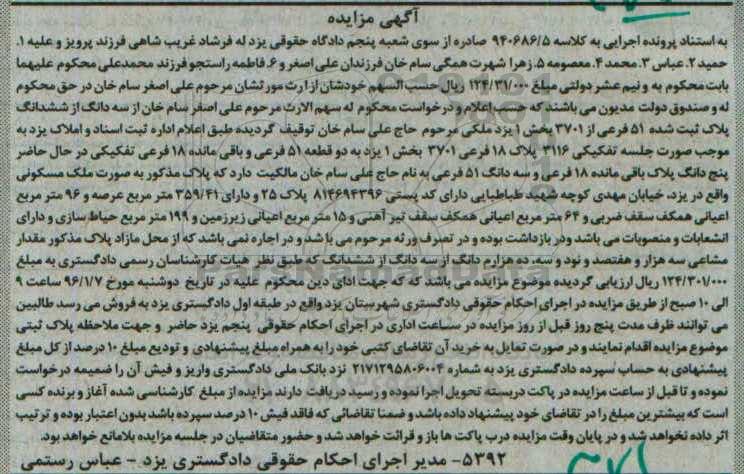 آگهی مزایده
به استناد پرونده اجرایی به کلاسه ۹۴۰۶۸۶/۵ صادره از سوی شعبه پنجم دادگاه حقوقی یزد له فرشاد غریب شاهی فرزند پرویز و علیه ۱.
حمید ۲. عباس ۳. محمد ۴. معصومه ۵. زهرا شهرت همگی سام خان فرزندان علی اصغر و ۶. فاطمه راستجو فرزند محمدعلی محکوم علیهما
بابت محکوم به و نیم عشر دولتی مبلغ ۱۲۴/۳۱/۰۰۰ ریال حسب السهم خودشان از ارث مورثشان مرحوم علی اصغر سام خان در حق محکوم
له و صندوق دولت مدیون می باشند که حسب اعلام و درخواست محکوم له سهم الارث مرحوم علی اصغر سام خان از سه دانگ از ششدانگ
پلاک ثبت شده ۵۱ فرعی از ۳۷۰۱ بخش ۱ یزد ملکی مرحوم حاج علی سام خان توقیف گردیده طبق اعلام اداره ثبت اسناد و املاک یزد به
موجب صورت جلسه تفکیکی ۳۱۱۶ پلاک ۱۸ فرعی ۳۷۰۱ بخش ۱ یزد به دو قطعه ۵۱ فرعی و باقی مانده ۱۸ فرعی تفکیکی در حال حاضر
پنج دانگ پلاک باقی مانده ۱۸ فرعی و سه دانگ ۵۱ فرعی به نام حاج علی سام خان مالکیت دارد که پلاک مذکور به صورت ملک مسکونی
واقع در یزد، خیابان مهدی کوچه شهید طباطبایی دارای کد پستی ۸۱۴۶۹۴۳۹۶ پلاک ۲۵ و دارای ۳۵۹/۴۱ متر مربع عرصه و ۹۶ متر مربع
اعیانی همکف سقف ضربی و ۶۴ متر مربع اعیانی همکف سقف تیر آهنی و ۱۵ متر مربع اعیانی زیرزمین و ۱۹۹ متر مربع حیاط سازی و دارای
انشعابات و منصوبات می باشد ودر بازداشت بوده و در تصرف ورثه مرحوم می باشد و در اجاره نمی باشد که از محل مازاد پلاک مذکور مقدار
مشاعی سه هزار و هفتصد و نود و سه، ده هزارم دانگ از سه دانگ از ششدانگ که طبق نظر هیات کارشناسان رسمی دادگستری به مبلغ
۱۲۴/۳۰۱/۰۰۰ ریال ارزیابی گردیده موضوع مزایده می باشد که که جهت ادای دین محکوم علیه در تاریخ دوشنبه مورخ ۹۶/۱/۷ ساعت ۹
الی ۱۰ صبح از طریق مزایده در اجرای احکام حقوقی دادگستری شهرستان یزد واقع در طبقه اول دادگستری یزد به فروش می رسد طالبین
می توانند ظرف مدت پنج روز قبل از روز مزایده در ساعت اداری در اجرای احکام حقوقی پنجم یزد حاضر و جهت ملاحظه پلاک ثبتی
موضوع مزایده اقدام نمایند و در صورت تمایل به خرید آن تقاضای کتبی خود را به همراه مبلغ پیشنهادی و تودیع مبلغ ۱۰ درصد از کل مبلغ
پیشنهادی به حساب سپرده دادگستری یزد به شماره ۲۱۷۱۲۹۵۸۰۶۰۰۴ نزد بانک ملی دادگستری واریز و فیش آن را ضمیمه درخواست
نموده و تا قبل از ساعت مزایده در پاکت دربسته تحویل اجرا نموده و رسید دریافت دارند مزایده از مبلغ کارشناسی شده آغاز و برنده کسی
است که بیشترین مبلغ را در تقاضای خود پیشنهاد داده باشد و ضمنا تقاضائی که فاقد فیش ۱۰ درصد سپرده باشد بدون اعتبار بوده و ترتیب
اثر داده نخواهد شد و در پایان وقت مزایده درب پاکت ها باز و قرائت خواهد شد و حضور متقاضیان در جلسه مزایده بلامانع خواهد بود.
۵۳۹۲- مدیر اجرای احکام حقوقی دادگستری یزد - عباس رستمی